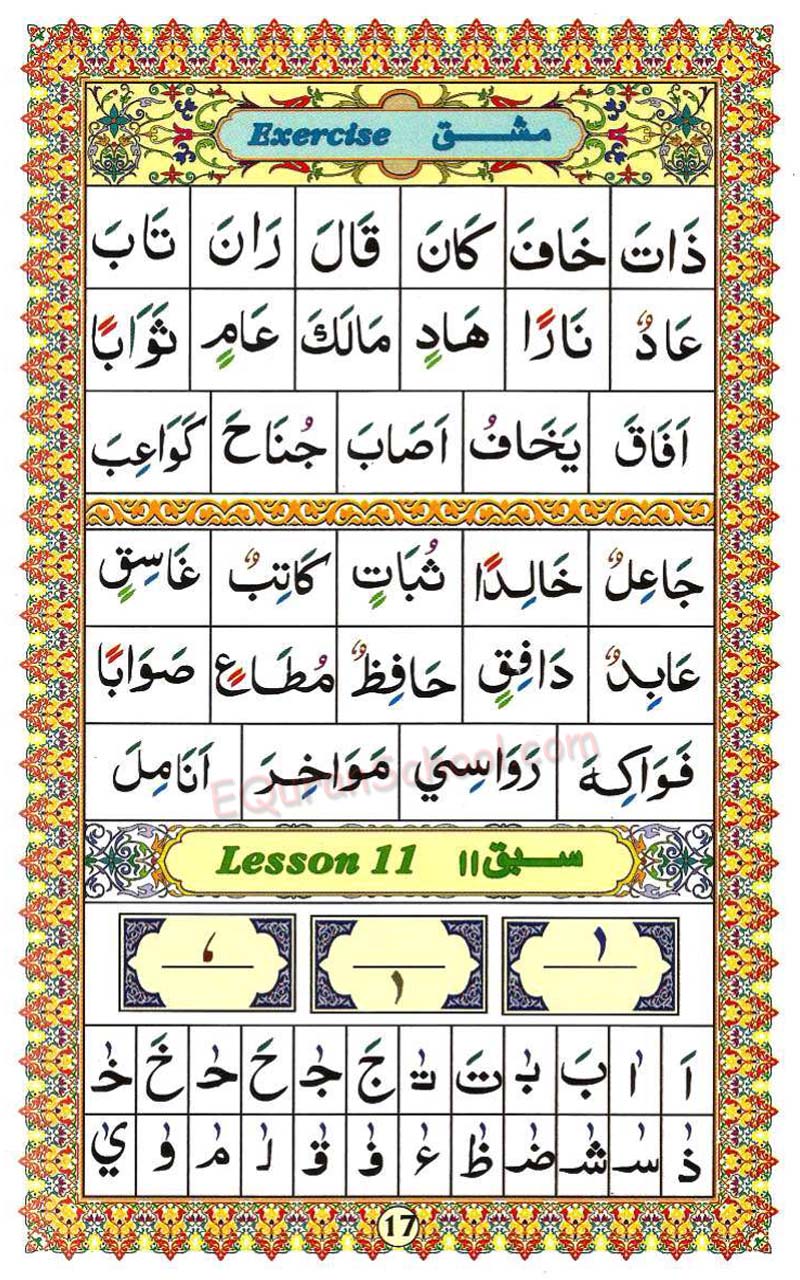 Exercise مشق
ذَاتَ خَافَ كَانَ قَالَ رَانَ تَابَ
عَادٌ نَارًا هَادٍ مَالَكَ عَامٍ ثَوَابًا
اَفَاقَ يَخَافُ اَصَابَ جُنَاحَ كَوَاعِبَ
جَاعِلٌ خَالِدًا ثُبَاتٍ كَاتِبٌ غَاسِقٍ
عَابِدٌ دَافِقٍ حَافِظٌ مُطَاعٍ صَوَابًا
فَوَاكِهَ رَوَاسِيَ مَوَاخِرَ اَنَامِلَ
EQuranSchool.com
Lesson 11 سبق ۱۱
اَ اٰ بَ بٰ تَ تٰ جَ جٰ حَ حٰ خَ خٰ
ذٰ سٰ شٰ ضٰ ظٰ ءٰ فٰ قٰ لٰ مٰ وٰ يٰ
17